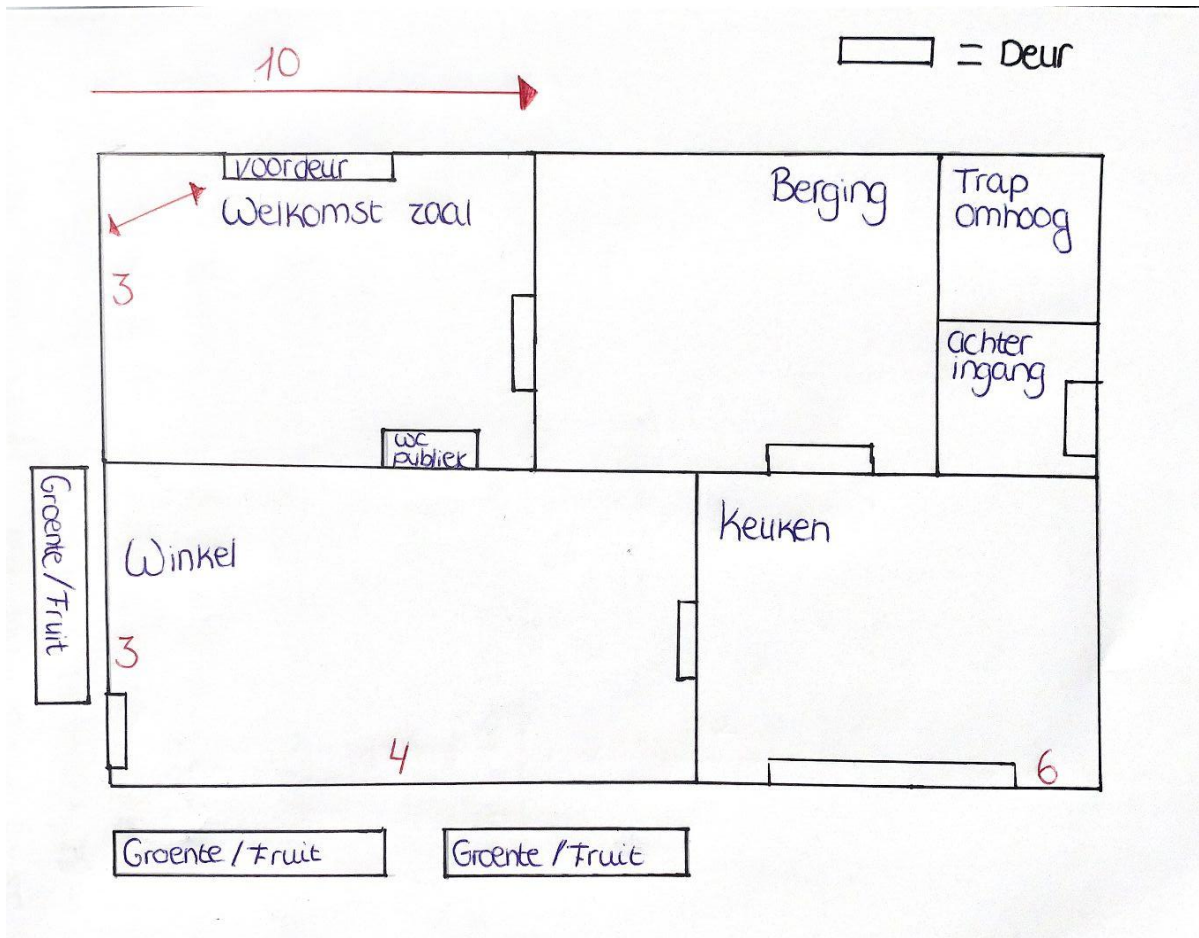 10
= Deur
voordeur
Welkomst zaal
3
Berging
Trap
omhoog
achter
ingang
wc
publiek
Groente/Fruit
Winkel
Keuken
3
4
6
Groente/Fruit
Groente/Fruit